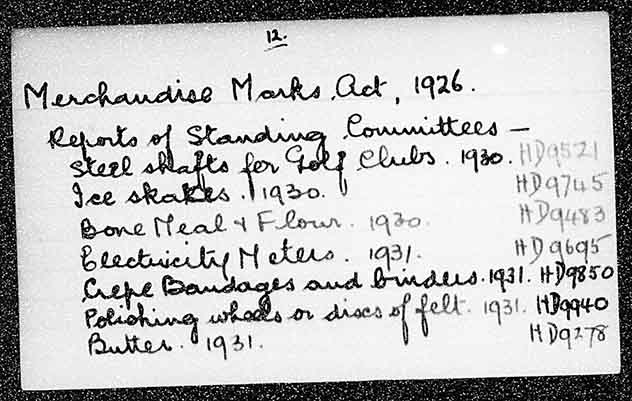 12.
Merchandise Marks Act, 1926.
Reports of Standing Committees —
Steel shafts for Golf Clubs. 1930. HD9521
Ice skates. 1930. HD9745
Bone Meal & Flour. 1930. HD9483
Electricity Meters. 1931. HD9695
Crepe Bandages and binders. 1931. HD9850
Polishing wheels or discs of felt. 1931. HD9940
Butter. 1931. HD9278